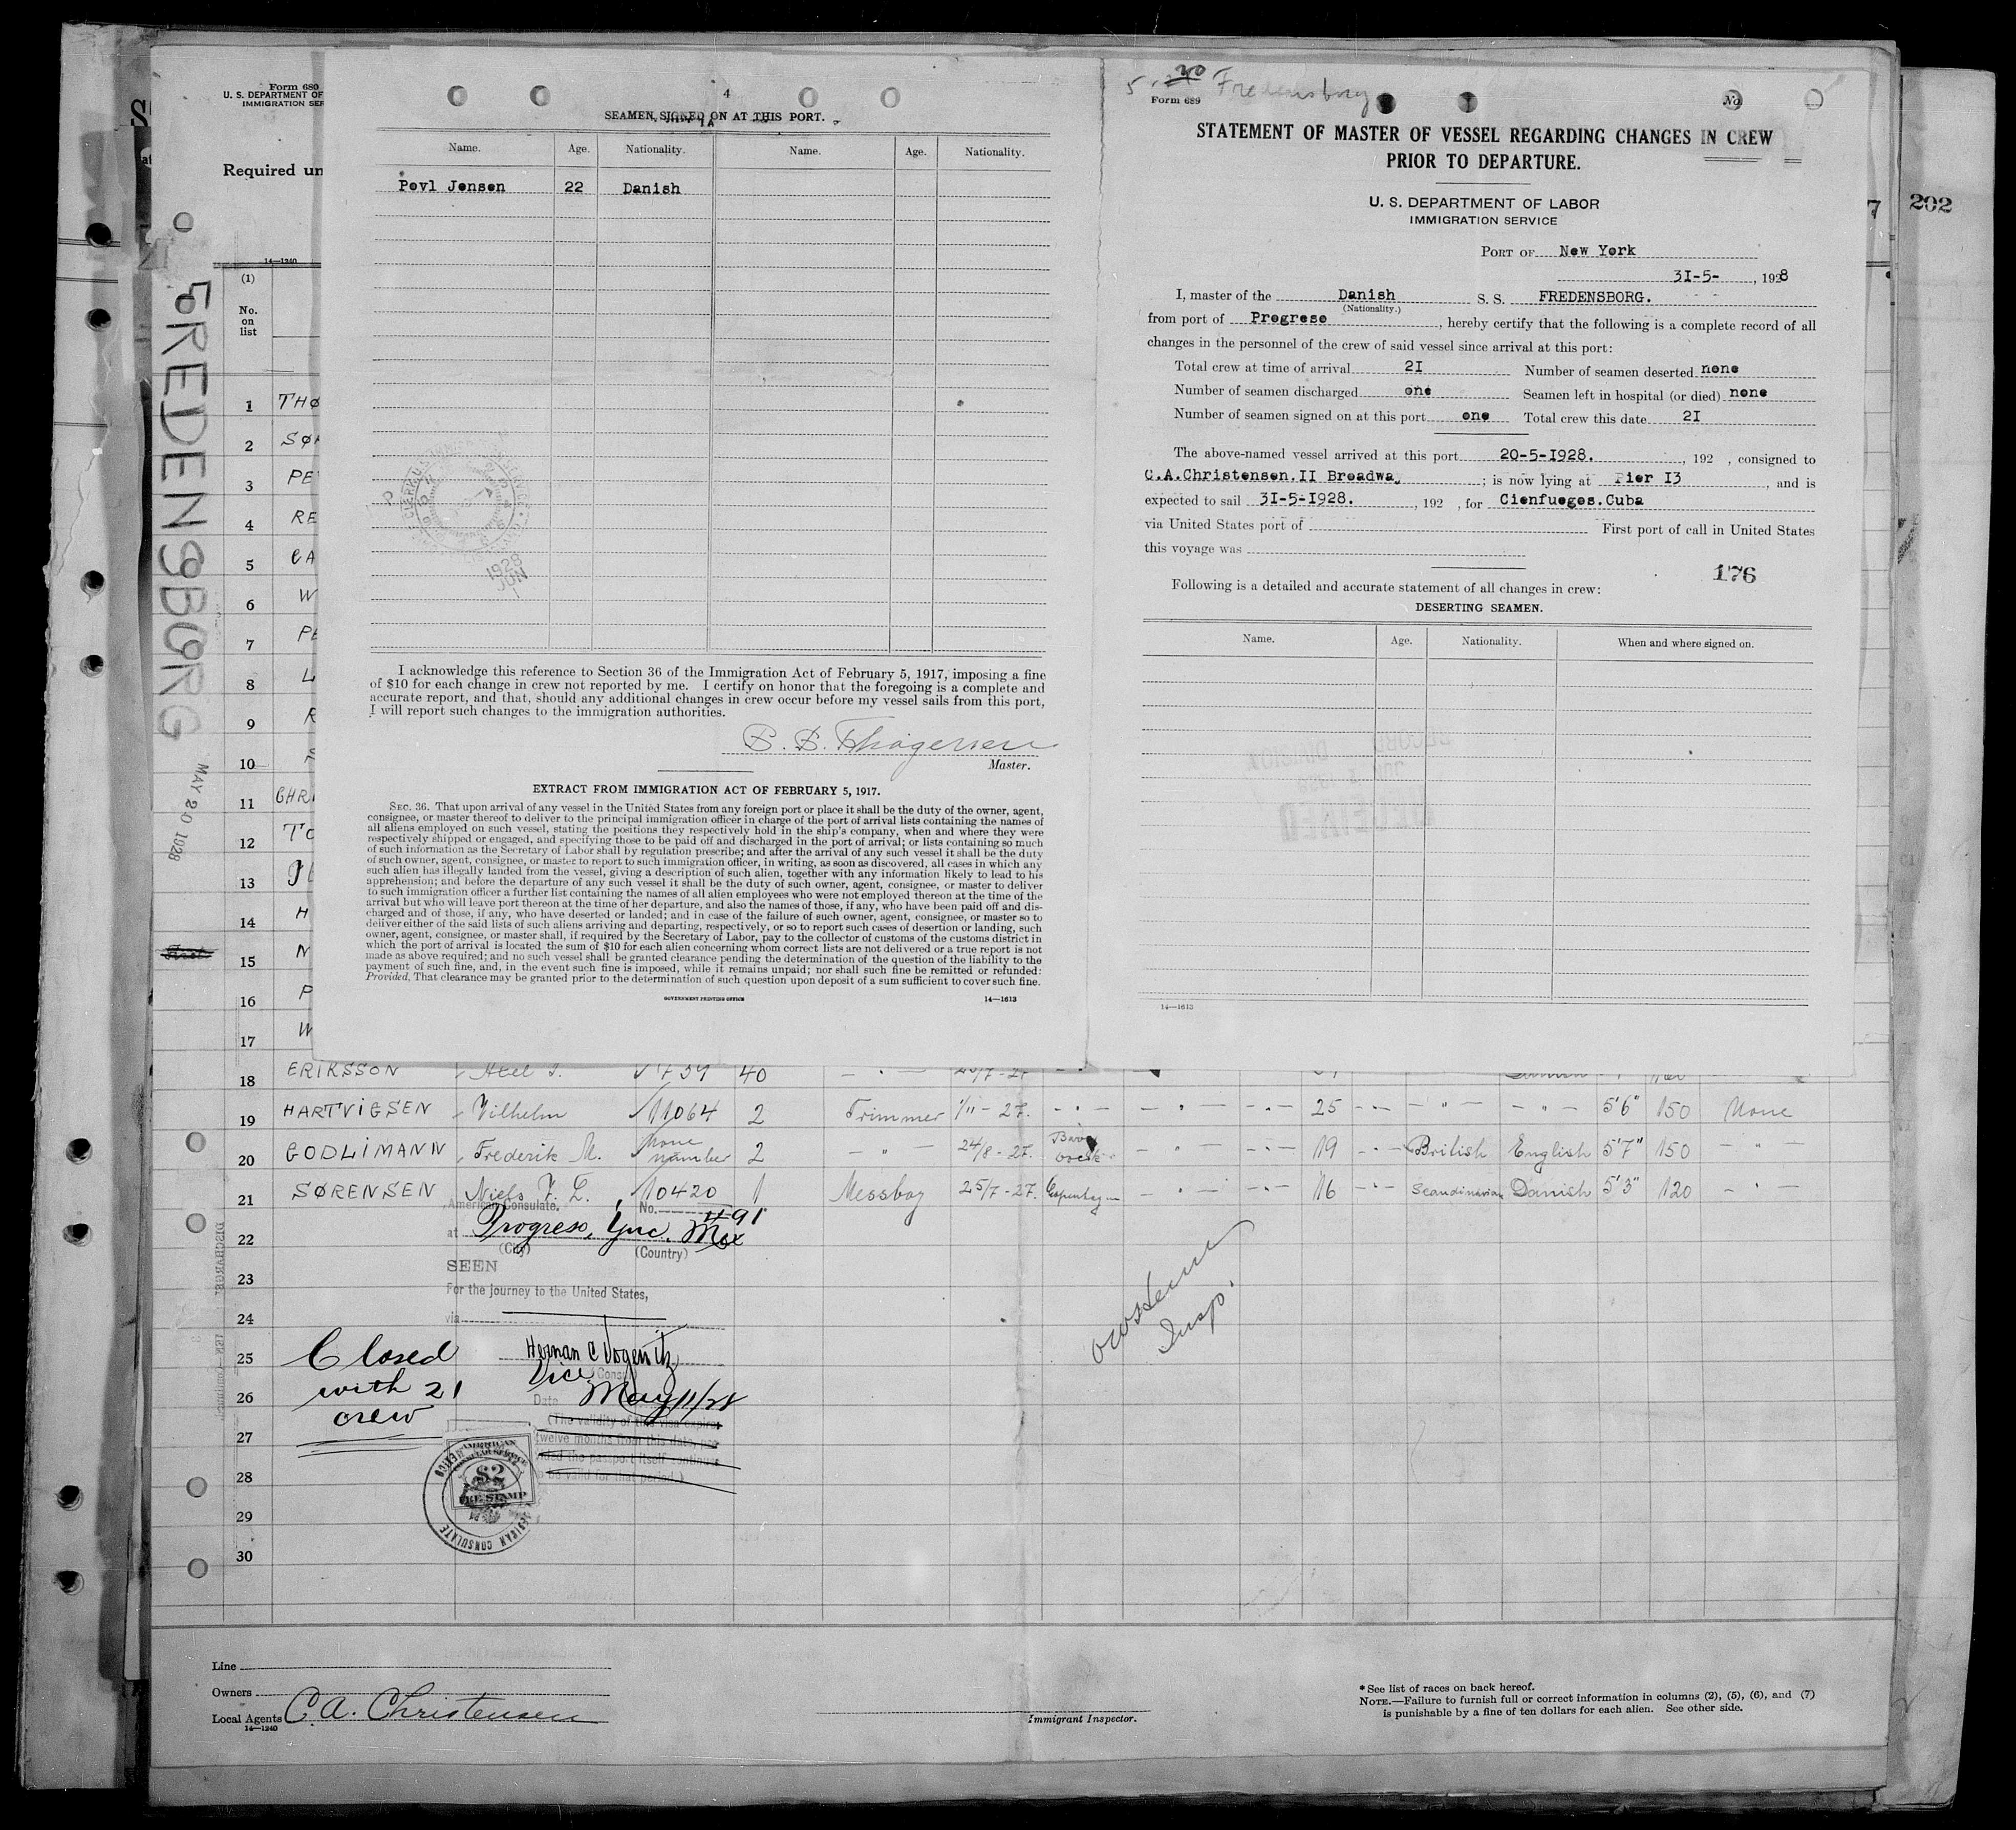 Form 680
U. S. DEPARTMENT OF
IMMIGRATION SER
Required un
14—1240
(1)
No.
on
list
FREDENSBORG
MAY 20 1928
4
SEAMEN SIGNED ON AT THIS PORT.
Name. Age. Nationality. Name. Age. Nationality.
Povl Jensen 22 Danish
1928
JUN
I acknowledge this reference to Section 36 of the Immigration Act of February 5, 1917, imposing a fine
of $10 for each change in crew not reported by me. I certify on honor that the foregoing is a complete and
accurate report, and that, should any additional changes in crew occur before my vessel sails from this port,
I will report such changes to the immigration authorities.
Master.
EXTRACT FROM IMMIGRATION ACT OF FEBRUARY 5, 1917.
SEC. 36. That upon arrival of any vessel in the United States from any foreign port or place it shall be the duty of the owner, agent,
consignee, or master thereof to deliver to the principal immigration officer in charge of the port of arrival lists containing the names of
all aliens employed on such vessel, stating the positions they respectively hold in the ship's company, when and where they were
respectively shipped or engaged, and specifying those to be paid off and discharged in the port of arrival; or lists containing so much
of such information as the Secretary of Labor shall by regulation prescribe; and after the arrival of any such vessel it shall be the duty
of such owner, agent, consignee, or master to report to such immigration officer, in writing, as soon as discovered, all cases in which any
such alien has illegally landed from the vessel, giving a description of such alien, together with any information likely to lead to his
apprehension; and before the departure of any such vessel it shall be the duty of such owner, agent, consignee, or master to deliver
to such immigration officer a further list containing the names of all alien employees who were not employed thereon at the time of the
arrival but who will leave port thereon at the time of her departure, and also the names of those, if any, who have been paid off and dis-
charged and of those, if any, who have deserted or landed; and in case of the failure of such owner, agent, consignee, or master so to
deliver either of the said lists of such aliens arriving and departing, respectively, or so to report such cases of desertion or landing, such
owner, agent, consignee, or master shall, if required by the Secretary of Labor, pay to the collector of customs of the customs district in
which the port of arrival is located the sum of $10 for each alien concerning whom correct lists are not delivered or a true report is not
made as above required; and no such vessel shall be granted clearance pending the determination of the question of the liability to the
payment of such fine, and, in the event such fine is imposed, while it remains unpaid; nor shall such fine be remitted or refunded:
Provided, That clearance may be granted prior to the determination of such question upon deposit of a sum sufficient to cover such fine.
GOVERNMENT PRINTING OFFICE 14—1613
Fredensborg
Form 689
No
STATEMENT OF MASTER OF VESSEL REGARDING CHANGES IN CREW
PRIOR TO DEPARTURE.
U. S. DEPARTMENT OF LABOR
IMMIGRATION SERVICE
PORT OF New York
31-5- , 1928
I, master of the Danish S. S. FREDENSBORG.
(Nationality.)
from port of Progreso , hereby certify that the following is a complete record of all
changes in the personnel of the crew of said vessel since arrival at this port:
Total crew at time of arrival 21 Number of seamen deserted none
Number of seamen discharged one Seamen left in hospital (or died) none
Number of seamen signed on at this port one Total crew this date 21
The above-named vessel arrived at this port 20-5-1928. , 192 , consigned to
C.A.Christensen.II Broadway ; is now lying at Pier 13 , and is
expected to sail 31-5-1928. , 192 , for Cienfuegos.Cuba
via United States port of First port of call in United States
this voyage was
176
Following is a detailed and accurate statement of all changes in crew:
DESERTING SEAMEN.
Name. Age. Nationality. When and where signed on.
14—1613
7 202
1 THØ
2 SØ
3 PE
4 RE
5 CA
6 W
7 PE
8 L
9 R
10
11 CHR
12 TO
13
14 H
15 N
16 P
17 W
18 ERIKSSON Axel 40
19 HARTVIGSEN Vilhelm 11064 2 Trimmer 1/11 - 27. 25 5'6" 150 None
20 GODLIMANN Frederik M. None number 2 24/8 - 27. 19 British English 5'7" 150
21 SØRENSEN Niels 10420 1 Messboy 25/7 - 27. 16 Scandinavian Danish 5'3" 120
American Consulate, No. 491
at Progreso, Yuc. Mex
(City) (Country)
22
SEEN
23
For the journey to the United States,
24 via
25 Closed
Vice Consul
26 with 21
Date May 11/28
crew
(The validity of this visa expires
27 twelve months from this date, pro-
vided the passport itself continues
28 to be valid for that period.)
AMERICAN
$2
FEE STAMP
AMERICAN CONSULATE
MEXICO
29
30
Insp.
Line
Owners
Local Agents C. A. Christensen
14—1240
Immigrant Inspector.
* See list of races on back hereof.
NOTE.—Failure to furnish full or correct information in columns (2), (5), (6), and (7)
is punishable by a fine of ten dollars for each alien. See other side.